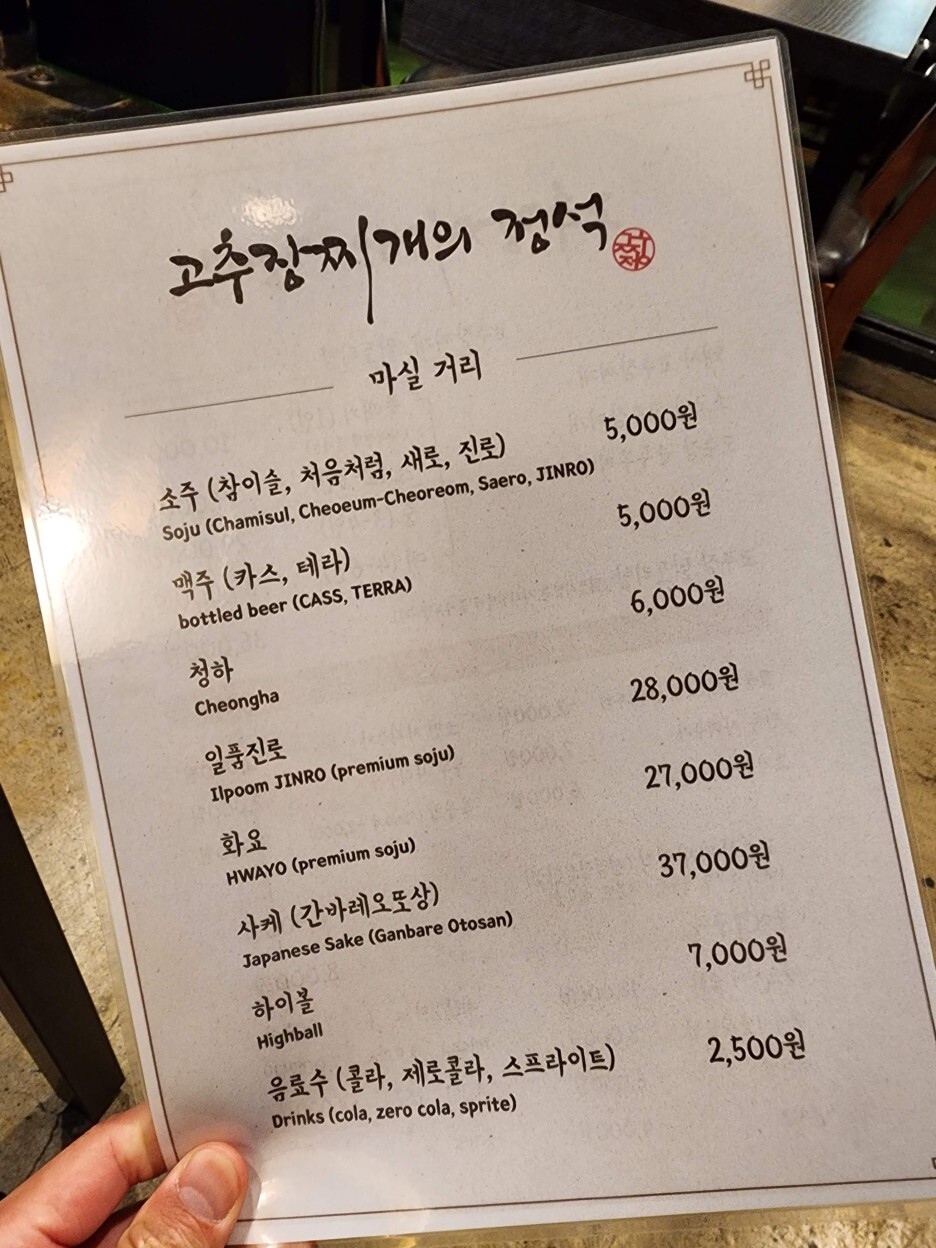 고추장찌개의 정석
고찌정
마실 거리
소주 (참이슬, 처음처럼, 새로, 진로) 5,000원
Soju (Chamisul, Cheoeum-Cheoreom, Saero, JINRO)
맥주 (카스, 테라) 5,000원
bottled beer (CASS, TERRA)
청하 6,000원
Cheongha
일품진로 28,000원
Ilpoom JINRO (premium soju)
화요 27,000원
HWAYO (premium soju)
사케 (간바레오또상) 37,000원
Japanese Sake (Ganbare Otosan)
하이볼 7,000원
Highball
음료수 (콜라, 제로콜라, 스프라이트) 2,500원
Drinks (cola, zero cola, sprite)